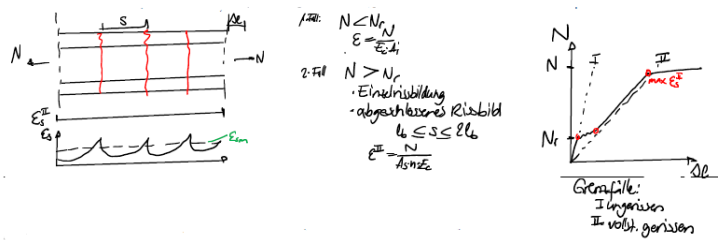 S
Δl
N
N
ε_s^II
ε_s
ε_sm
1. Fall: N < N_r
ε = N / E_c · A_i
2. Fall N > N_r
· Einzelrissbildung
· abgeschlossenes Rissbild
l_b ≤ s ≤ 2l_b
ε^II = N / A_s · n · E_c
N
I
II
N
max ε_s^II
N_r
Δl
Grenzfälle:
I ungerissen
II vollst. gerissen